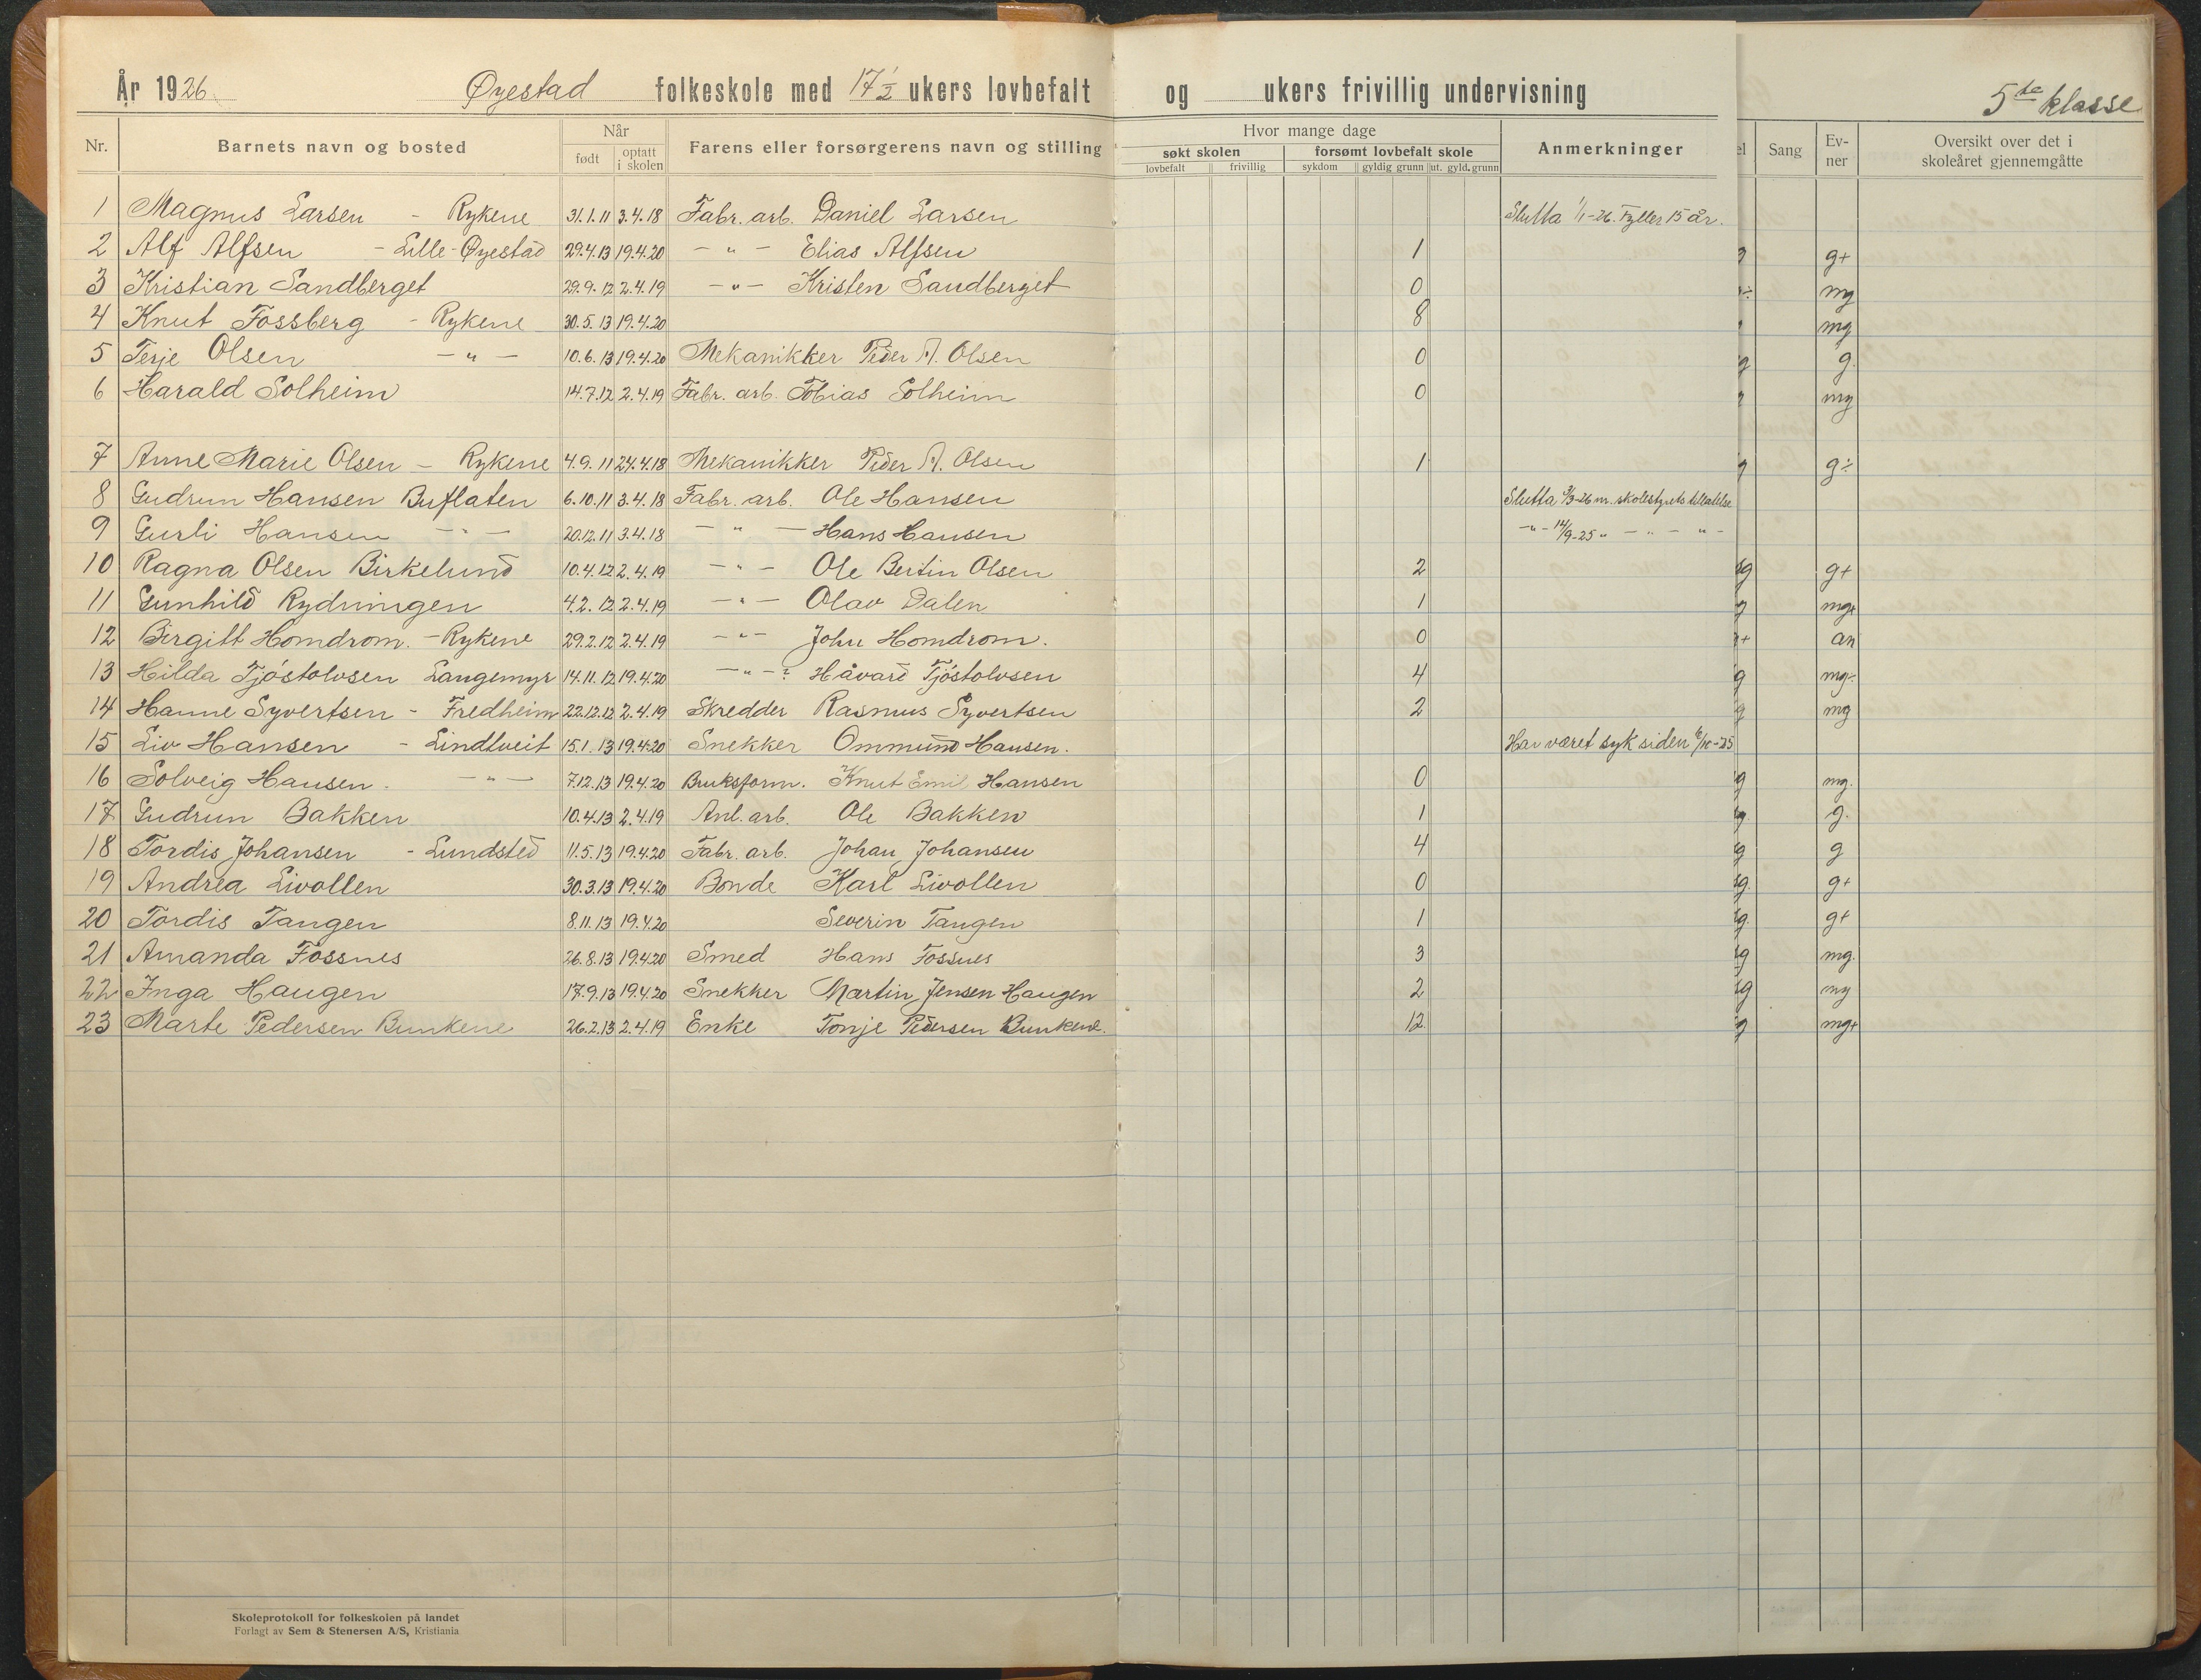 År 1926 Øyestad folkeskole med 17 1/2 ukers lovbefalt og ukers frivillig undervisning 5te klasse
Nr. Barnets navn og bosted Når født optatt i skolen Farens eller forsørgerens navn og stilling Hvor mange dage søkt skolen lovbefalt frivillig forsømt lovbefalt skole sykdom gyldig grunn ut. gyld. grunn Anmerkninger el Sang Ev-ner Oversikt over det i skoleåret gjennemgåtte
1 Magnus Larsen - Rykene 31.1.11 3.4.18 Fabr. arb. Daniel Larsen Slutta 1/1-26. Fyller 15 år.
2 Alf Alfsen - Lille-Øyestad 29.4.13 19.4.20 - " - Elias Alfsen 1 g+
3 Kristian Sandberget 29.9.12 2.4.19 - " - Kristen Sandberget 0 mg
4 Knut Fossberg - Rykene 30.5.13 19.4.20 8 mg
5 Terje Olsen - " - 10.6.13 19.4.20 Mekanikker Peder A. Olsen 0 g g.
6 Harald Solheim 14.7.12 2.4.19 Fabr. arb. Tobias Solheim 0 mg
7 Anne Marie Olsen - Rykene 4.9.11 24.4.18 Mekanikker Peder A. Olsen 1 g g÷
8 Gudrun Hansen Buflaten 6.10.11 3.4.18 Fabr. arb. Ole Hansen Slutta 3/3-26 m. skolestyrets tillatelse
9 Gurli Hansen - " - 20.12.11 3.4.18 - " - Hans Hansen - " - 14/9-25 " - " - " -
10 Ragna Olsen Birkelund 10.4.12 2.4.19 - " - Ole Bertin Olsen 2 g g+
11 Gunhild Rydningen 4.2.12 2.4.19 - " - Olav Dalen 1 g mg+
12 Birgitt Homdrom. - Rykene 29.2.12 2.4.19 - " - John Homdrom. 0 + an
13 Hilda Tjøstolvsen Langemyr 14.11.12 19.4.20 - " - ? Håvard Tjøstolvsen 4 g mg÷
14 Hanne Syvertsen - Fredheim 22.12.12 2.4.19 Skredder Rasmus Syvertsen 2 g mg
15 Liv Hansen - Lindtveit 15.1.13 19.4.20 Snekker Ommund Hansen. Har været syk siden /10-25
16 Solveig Hansen. - " - 7.12.13 19.4.20 Bruksform. Knut Emil Hansen 0 g mg.
17 Gudrun Bakken 10.4.13 2.4.19 Anl. arb. Ole Bakken 1 g. g.
18 Tordis Johansen - Lundsted 11.5.13 19.4.20 Fabr. arb. Johan Johansen 4 g g
19 Andrea Livollen 30.3.13 19.4.20 Bonde Karl Livollen 0 g. g+
20 Tordis Tangen 8.11.13 19.4.20 Severin Tangen 1 g. g+
21 Amanda Fossnes 26.8.13 19.4.20 Smed Hans Fossnes 3 g mg.
22 Inga Haugen 17.9.13 19.4.20 Snekker Martin Jensen Haugen 2 g mg
23 Marte Pedersen Bunkene 26.2.13 2.4.19 Enke Tonje Pedersen Bunkene. 12. g mg+
Skoleprotokoll for folkeskolen på landet
Forlagt av Sem & Stenersen A/S, Kristiania